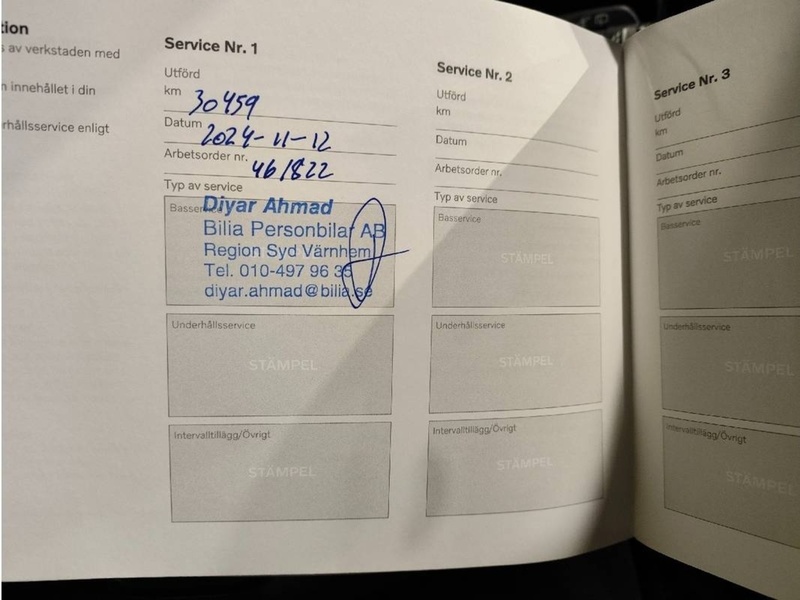 tion
s av verkstaden med
n innehållet i din
rhållsservice enligt
Service Nr. 1
Utförd
km 30459
Datum 2024-11-12
Arbetsorder nr. 461822
Typ av service
Basservice
Diyar Ahmad
Bilia Personbilar AB
Region Syd Värnhem
Tel. 010-497 96 36
diyar.ahmad@bilia.se
Underhållsservice
STÄMPEL
Intervalltillägg/Övrigt
STÄMPEL
Service Nr. 2
Utförd
km
Datum
Arbetsorder nr.
Typ av service
Basservice
STÄMPEL
Underhållsservice
STÄMPEL
Intervalltillägg/Övrigt
STÄMPEL
Service Nr. 3
Utförd
km
Datum
Arbetsorder nr.
Typ av service
Basservice
STÄMPEL
Underhållsservice
STÄMPEL
Intervalltillägg/Övrigt
STÄMPEL